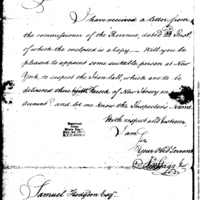 I have received a letter from
the commissioner of the Revenue, dated 22 Inst.
of which the enclosed is a copy — Will you be
pleased to appoint some suitable person at New
York, to inspect the Iron ball, which are to be
delivered there by of New Jersey on
Account? and let me know the Inspectors Name
With respect and Esteem
I am Sir
Your Obed Servant
Samuel Hodgdon Esqr.